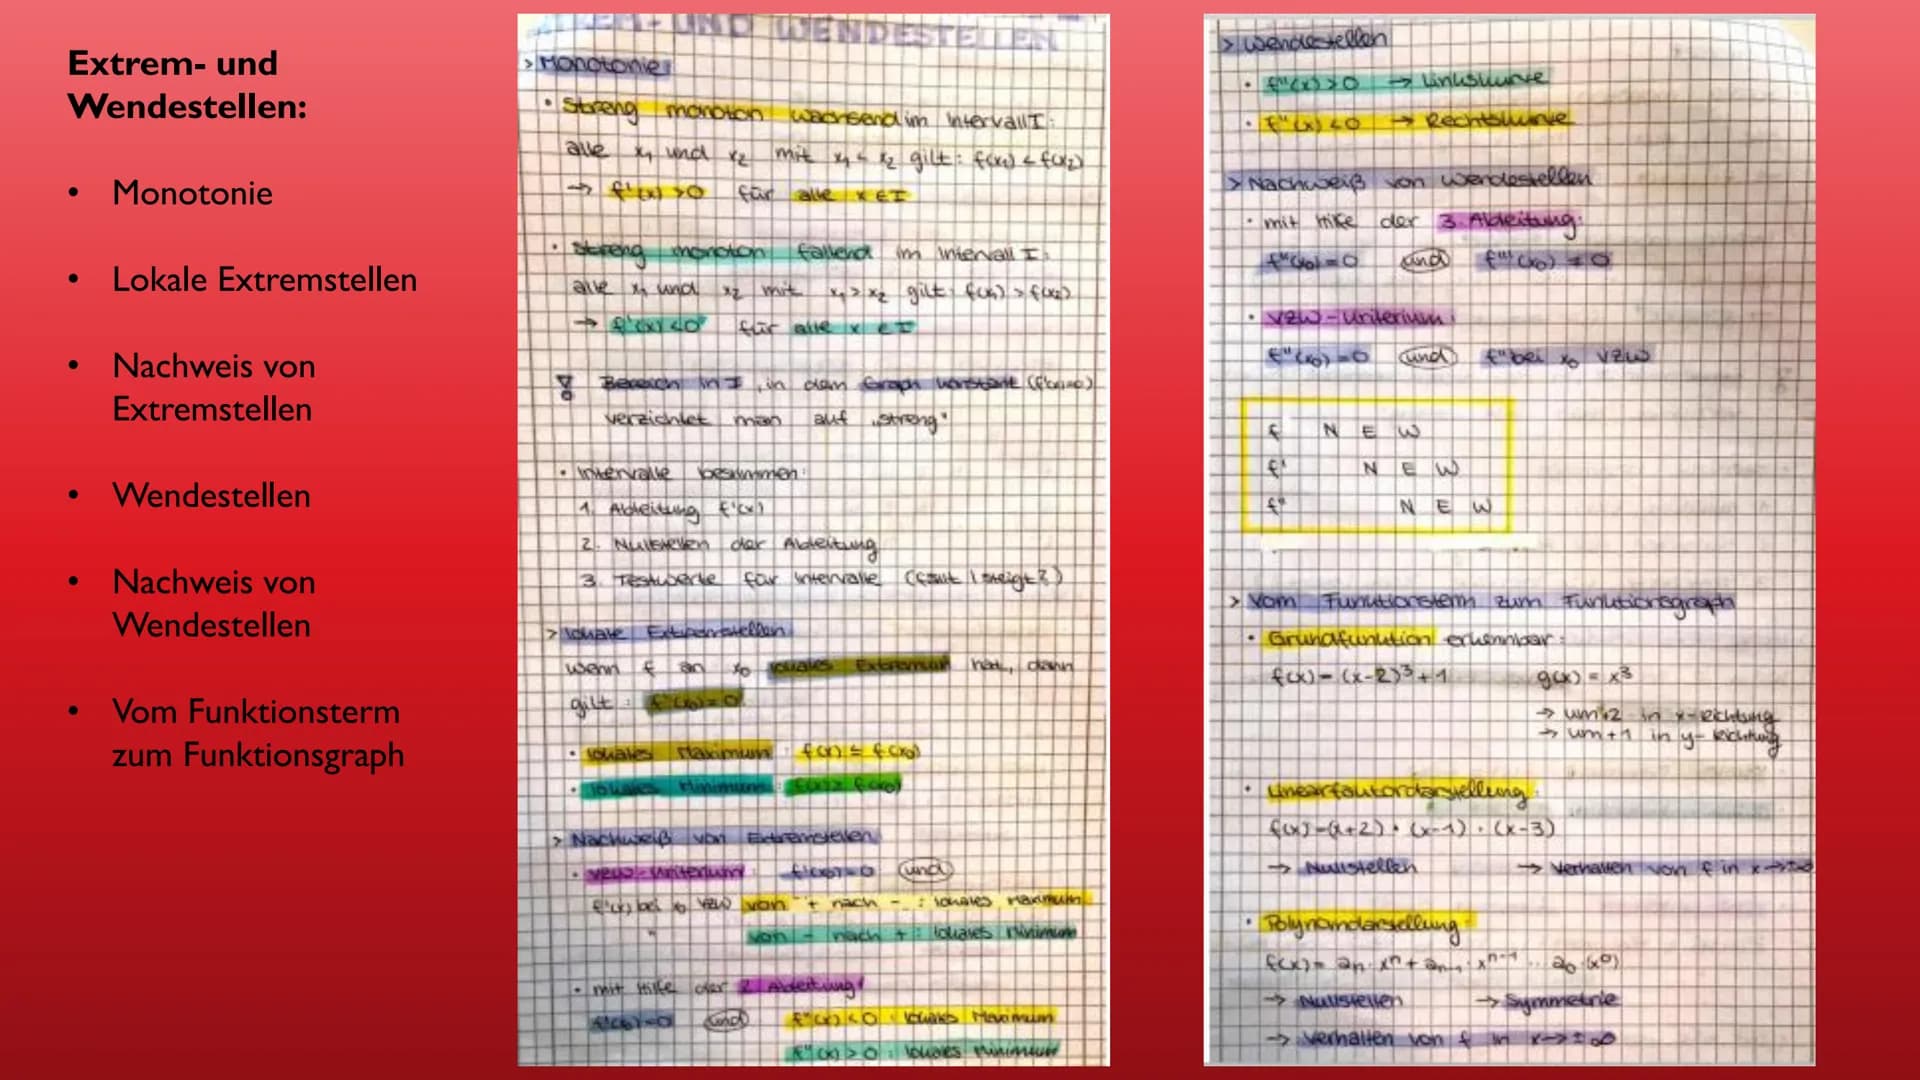 Extrem- und
Wendestellen:
• Monotonie
• Lokale Extremstellen
• Nachweis von
Extremstellen
• Wendestellen
• Nachweis von
Wendestellen
• Vom Funktionsterm
zum Funktionsgraph
EXTREM- UND WENDESTELLEN
> Monotonie:
• Streng monoton wachsend im Intervall I:
alle x₁ und x₂ mit x₁ < x₂ gilt: f(x₁) < f(x₂)
→ f'(x) > 0 für alle x ∈ I
• Streng monoton fallend im Intervall I:
alle x₁ und x₂ mit x₁ > x₂ gilt: f(x₁) > f(x₂)
→ f'(x) < 0 für alle x ∈ I
! Bereich in I, in dem Graph konstant (f'(x)=0)
verzichtet man auf „streng"
• Intervalle bestimmen:
1. Ableitung f'(x)
2. Nullstellen der Ableitung
3. Testwerte für Intervalle (fällt / steigt?)
> lokale Extremstellen
wenn f an x₀ lokales Extremum hat, dann
gilt: f'(x₀) = 0
• lokales Maximum: f(x) ≤ f(x₀)
• lokales Minimum: f(x) ≥ f(x₀)
> Nachweiß von Extremstellen
• VZW-Kriterium: f'(x₀) = 0 und
f'(x) bei x₀ VZW von + nach - : lokales Maximum
" von - nach + : lokales Minimum
• mit Hilfe der 2. Ableitung:
f'(x₀) = 0 und f''(x) < 0 : lokales Maximum
f''(x) > 0 : lokales Minimum
> Wendestellen
• f''(x) > 0 → Linkskurve
• f''(x) < 0 → Rechtskurve
> Nachweiß von Wendestellen
• mit Hilfe der 3. Ableitung:
f''(x₀) = 0 und f'''(x₀) ≠ 0
• VZW-Kriterium:
f''(x₀) = 0 und f'' bei x₀ VZW
f N E W
f' N E W
f'' N E W
> Vom Funktionsterm zum Funktionsgraph
• Grundfunktion erkennbar:
f(x) = (x-2)³ + 1 g(x) = x³
→ um +2 in x-Richtung
→ um +1 in y-Richtung
• Linearfaktordarstellung:
f(x) = (x+2) · (x-1) · (x-3)
→ Nullstellen → Verhalten von f in x→±∞
• Polynomdarstellung:
f(x) = aₙ · xⁿ + aₙ₋₁ · xⁿ⁻¹ ... a₀ · (x⁰)
→ Nullstellen → Symmetrie
→ Verhalten von f in x→±∞